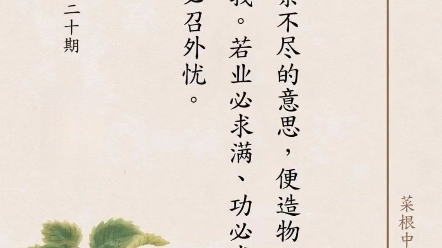 菜根中
不尽的意思，便造物
我。若业必求满、功必
召外忧。
二十期